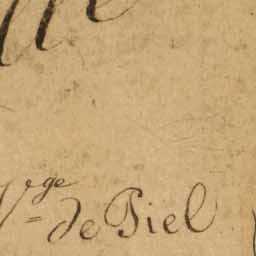 V^ge= de Piel